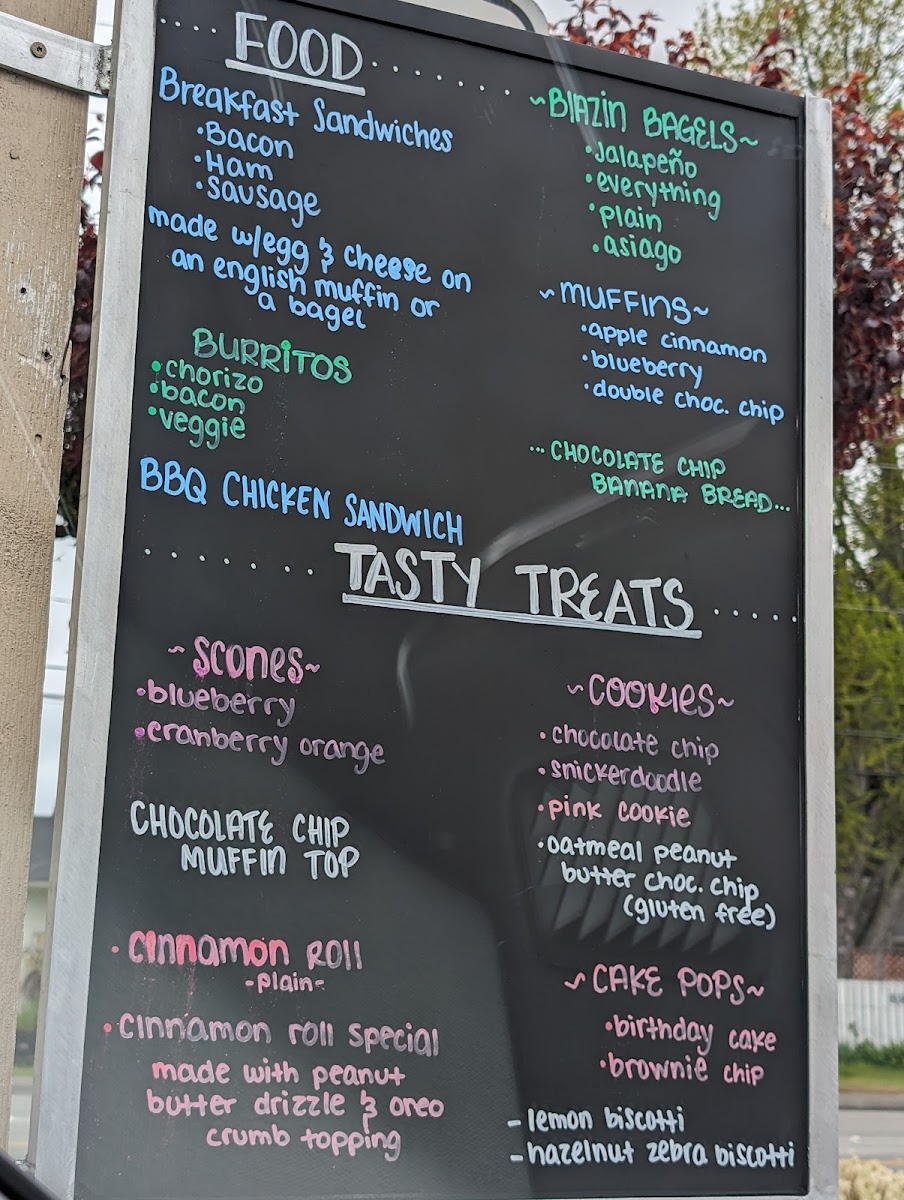 FOOD
Breakfast Sandwiches
•Bacon
•Ham
•sausage
made w/egg & cheese on
an english muffin or
a bagel
BURRITOS
•chorizo
•bacon
•veggie
BBQ CHICKEN SANDWICH
~BlAZIN BAGELS~
•Jalapeño
•everything
•plain
•asiago
~MUFFINS~
•apple cinnamon
•blueberry
•double choc. chip
...CHOCOLATE CHIP
BANANA BREAD...
TASTY TREATS
~SCONES~
•blueberry
•cranberry orange
CHOCOLATE CHIP
MUFFIN TOP
•cinnamon Roll
-plain-
•cinnamon roll special
made with peanut
butter drizzle & oreo
crumb topping
~COOKIES~
•chocolate chip
•snickerdoodle
•pink cookie
•oatmeal peanut
butter choc. chip
(gluten free)
~CAKE POPS~
•birthday cake
•brownie chip
-lemon biscotti
-hazelnut zebra biscotti